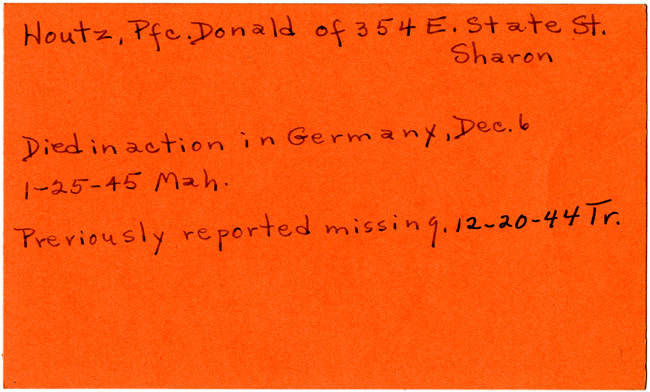 Houtz, Pfc. Donald of 354 E. State St.
Sharon
Died in action in Germany, Dec. 6
1-25-45 Mah.
Previously reported missing. 12-20-44 Tr.